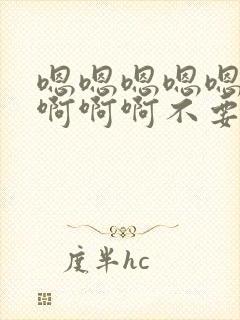 嗯嗯嗯嗯嗯
啊啊啊不要
度半hc